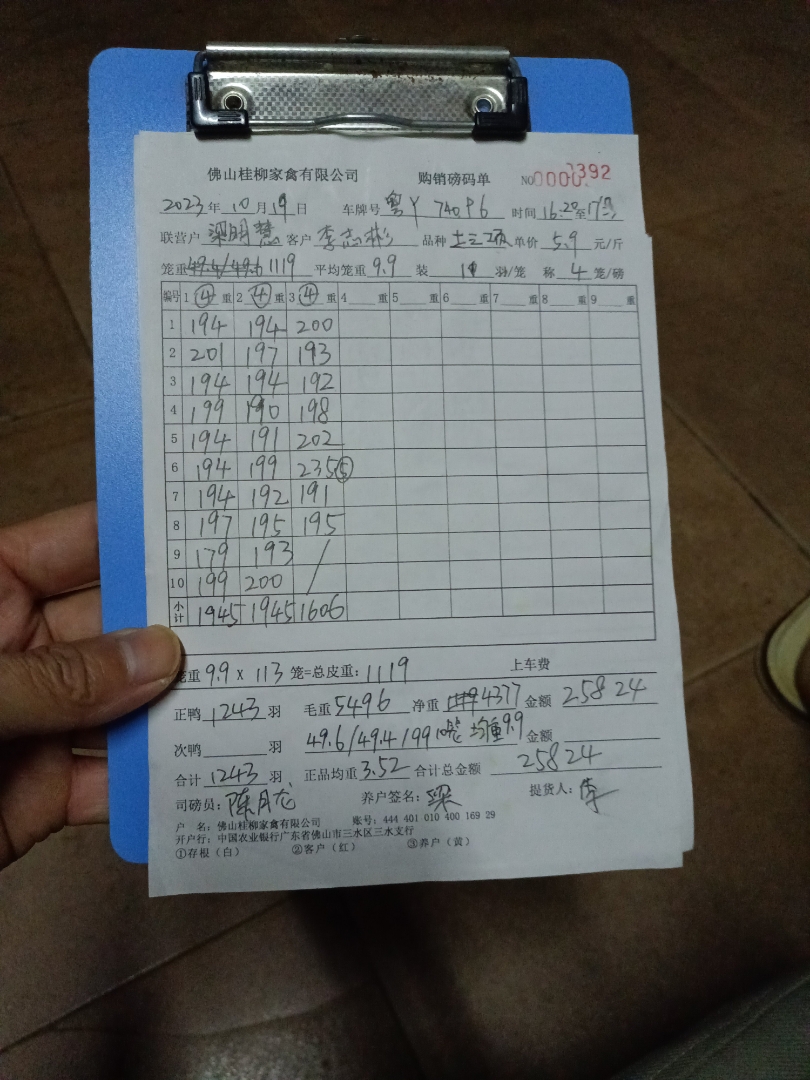 佛山桂柳家禽有限公司 购销磅码单 NO 0000392
2023年10月19日 车牌号 粤Y 740P6 时间 16:20至
联营户 梁明慧 客户 李志彬 品种 单价 5.9 元/斤
笼重 49.4/49.6 1119 平均笼重 9.9 装 11 羽/笼 称 4 笼/磅
编号 1 ④ 重 2 ④ 重 3 ④ 重 4 重 5 重 6 重 7 重 8 重 9 重
1 194 194 200
2 201 197 193
3 194 194 192
4 199 190 198
5 194 191 202
6 194 199 235⑤
7 194 192 191
8 197 195 195
9 179 193 /
10 199 200 /
小计 1945 1945 1606
笼重 9.9 X 113 笼=总皮重: 1119 上车费
正鸭 1243 羽 毛重 5496 净重 4377 金额 25824
次鸭 羽 49.6/49.4/99 10笼 均重9.9 金额
合计 1243 羽 正品均重 3.52 合计总金额 25824
司磅员: 陈月龙 养户签名: 梁 提货人: 李
户 名: 佛山桂柳家禽有限公司 账号: 444 401 010 400 169 29
开户行: 中国农业银行广东省佛山市三水区三水支行
①存根(白) ②客户(红) ③养户(黄)